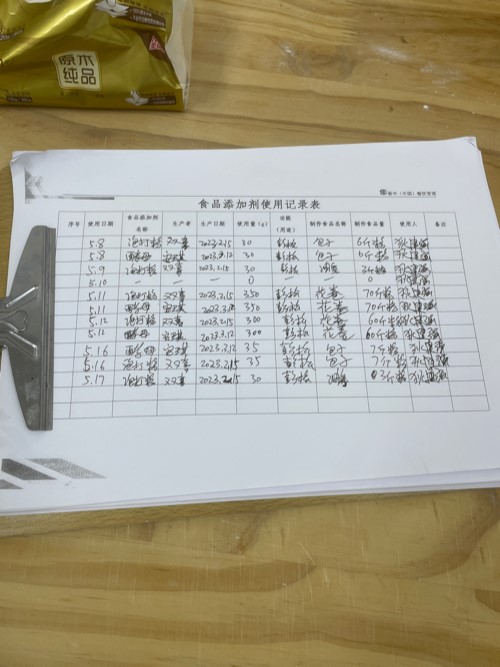 原木
纯品
新中（中国）餐饮管理
食品添加剂使用记录表
序号 使用日期 食品添加剂名称 生产者 生产日期 使用量(g) 功能（用途） 制作食品名称 制作食品量 使用人 备注
5.8 泡打粉 双喜 2023.2.15 30 膨松 包子 6斤粉
5.8 酵母 2023.3.12 30 膨松 包子 6斤粉
5.9 泡打粉 双喜 2023.2.15 30 膨松 3斤粉
5.10 — — — 0 — — 0
5.11 泡打粉 双喜 2023.2.15 350 膨松 花卷 70斤粉
5.11 酵母 2023.3.12 350 膨松 花卷 70斤粉
5.12 泡打粉 双喜 2023.2.15 300 膨松 花卷 60斤粉
5.12 酵母 2023.3.12 300 膨松 花卷 60斤粉
5.16 酵母 2023.3.12 35 膨松 包子 7斤粉
5.16 泡打粉 双喜 2023.2.15 35 膨松 包子 7斤粉
5.17 泡打粉 双喜 2023.2.15 30 膨松 3斤粉